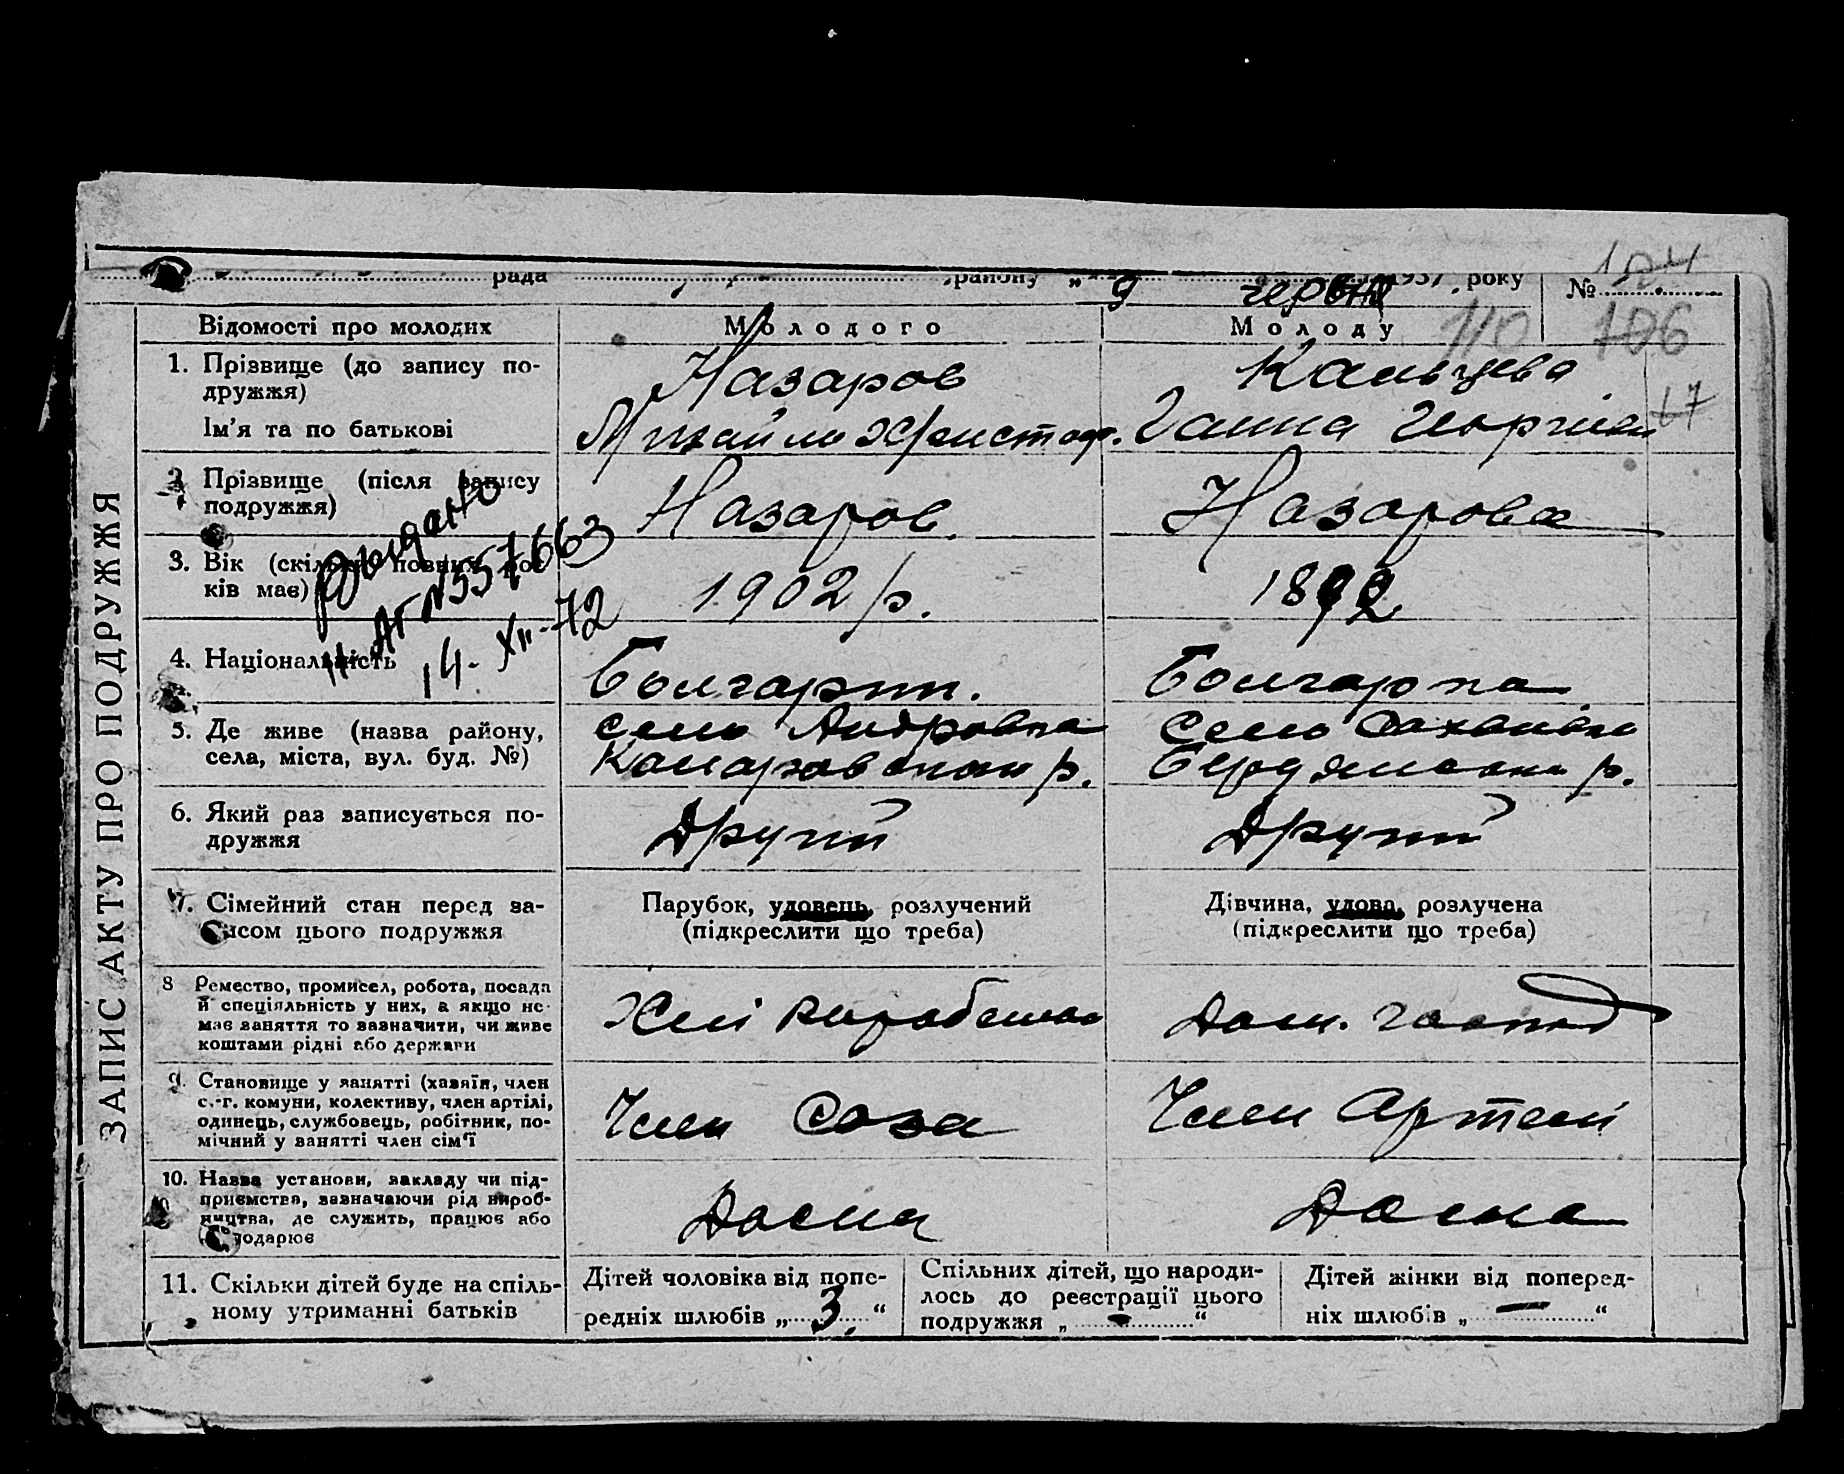 рада району „ 9 червня 1937 року № 104
Відомості про молодих Молодого Молоду 110 106
1. Прізвище (до запису по-
дружжя) Назаров
Ім'я та по батькові Михайло Христоф. Ганна Георгіївн
17
2. Прізвище (після запису
подружжя) Назаров. Назарова
3. Вік (скільки повних ро-
ків має) 1902 р. 1892
Выдано
II-АГ №557663
14-XII-72
4. Національність Болгарин. Болгарка
5. Де живе (назва району,
села, міста, вул. буд. №) село Андровка село
р. Бердянськ р.
6. Який раз записується по-
дружжя Другий Другий
7. Сімейний стан перед за-
писом цього подружжя
Парубок, удовець, розлучений
(підкреслити що треба)
Дівчина, удова, розлучена
(підкреслити що треба)
8 Ремество, промисел, робота, посада
й спеціяльність у них, а якщо не
має заняття то зазначити, чи живе
коштами рідні або держави
Дом. господ
9. Становище у занятті (хазяїн, член
с.-г. комуни, колективу, член артілі,
одинець, службовець, робітник, по-
мічний у занятті член сім'ї
Член Соза Член Артелі
10. Назва установи, закладу чи під-
приємства, зазначаючи рід вироб-
ництва, де служить, працює або
господарює
11. Скільки дітей буде на спіль-
ному утриманні батьків
Дітей чоловіка від попе-
редніх шлюбів „ 3. “
Спільних дітей, що народи-
лось до реєстрації цього
подружжя „ - “
Дітей жінки від поперед-
ніх шлюбів „ — “
ЗАПИС АКТУ ПРО ПОДРУЖЖЯ